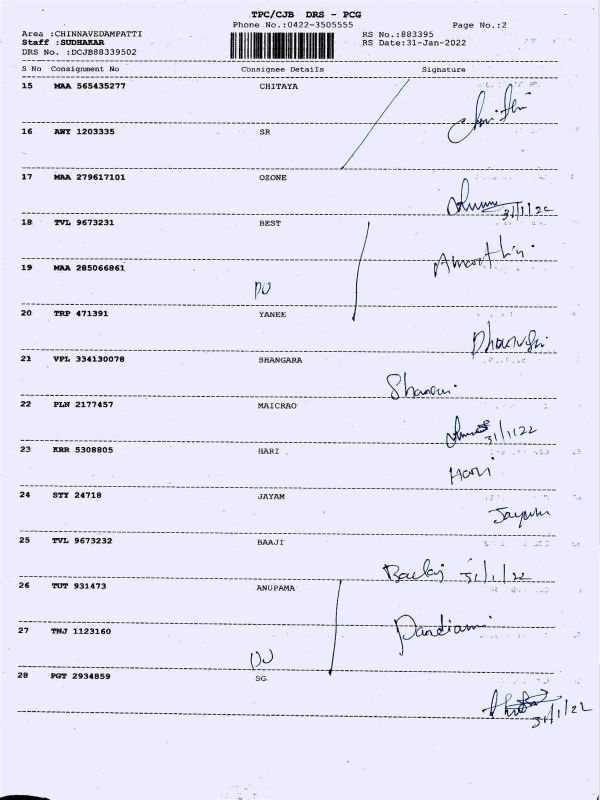 TPC/CJB DRS - PCG
Phone No.:0422-3505555 Page No.:2
Area :CHINNAVEDAMPATTI RS No.:883395
Staff :SUDHAKAR RS Date:31-Jan-2022
DRS No. :DCJB88339502
S No Consignment No Consignee Details Signature
15 MAA 565435277 CHITAYA
16 AWY 1203335 SR
17 MAA 279617101 OZONE
31/1/22
18 TVL 9673231 BEST
19 MAA 285066861
DU
20 TRP 471391 YANEE
21 VPL 334130078 SHANGARA
22 PLN 2177457 MAICRAO
31/1/22
23 KRR 5308805 HARI
Hari
24 STY 24718 JAYAM
25 TVL 9673232 BAAJI
31/1/22
26 TUT 931473 ANUPAMA
27 TNJ 1123160
DU
28 PGT 2934859 SG
31/1/22